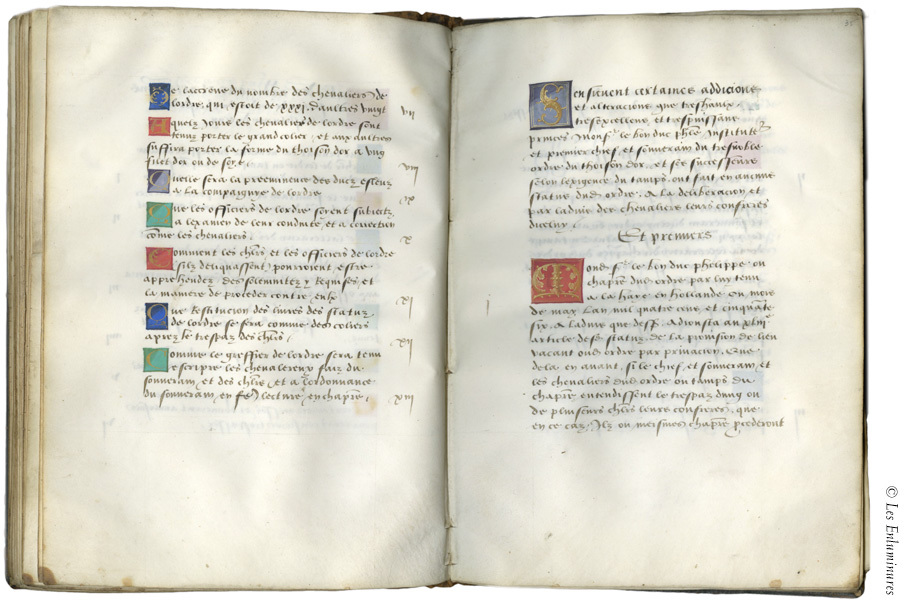 De laccroiz du nombre des chevaliers de
lordre qui estoit de xxxi. daultres vingt
vii
A quelz jours les chevaliers de lordre sont
tenuz porter le grand colier, et aux aultres
suffira porter la forme du thoison dor a ung
fillet dor ou de soye.
viii
Quelle sera la preeminence des ducz esleuz
a la compaignie de lordre
ix
Que les officiers de lordre seront subiectz
a lexamen de leur conduite, et a correction
come les chevaliers.
x
Comment les chlrs et les officiers de lordre
silz deliquassent, pourroient estre
apprehendez. Des solemnitez y requises, et
la maniere de proceder contre eulx
xi
Que restitucion des livres des statuz
de lordre se fera comme des coliers
apres le trespaz des chlrs.
xii
Comme le greffier de lordre sera tenu
escripre les chevalereux faiz du
souverain, et des chlrs, et a lordonnance
du souverain, en fere lecture, en chapre.
xiii
35
Sensuivent certaines addicions
et alteracions que treshaulx
tresexcellens, et trespuissans
princes Monsr le bon duc phle Instituteur
et premier chief, et souverain du tresnoble
ordre du thoison dor, et ses successeurs
selon lexigence du tamps ont fait en aucuns
statuz dud. ordre. A la deliberacion et
par ladviz des chevaliers leurs confreres
diceluy.
Et premiers
Mond. sr le bon duc philippe ou
chapre dud. ordre par luy tenu
a la haye en hollande ou mois
de may Lan mil quatre cens et cinquante
six. A laduiz que dessus. Adiousta au xliiie
article desd. statuz, de la provision de lieu
vacant oud. ordre par privacion. Que
dela en avant, si le chief, et souverain, et
les chevaliers dud. ordre ou tamps du
chapre entendissent le trespaz dung ou
de plusieurs chlrs leurs confreres, que
en ce caz, Ilz ou meismes chapre procederont
© Les Enluminures